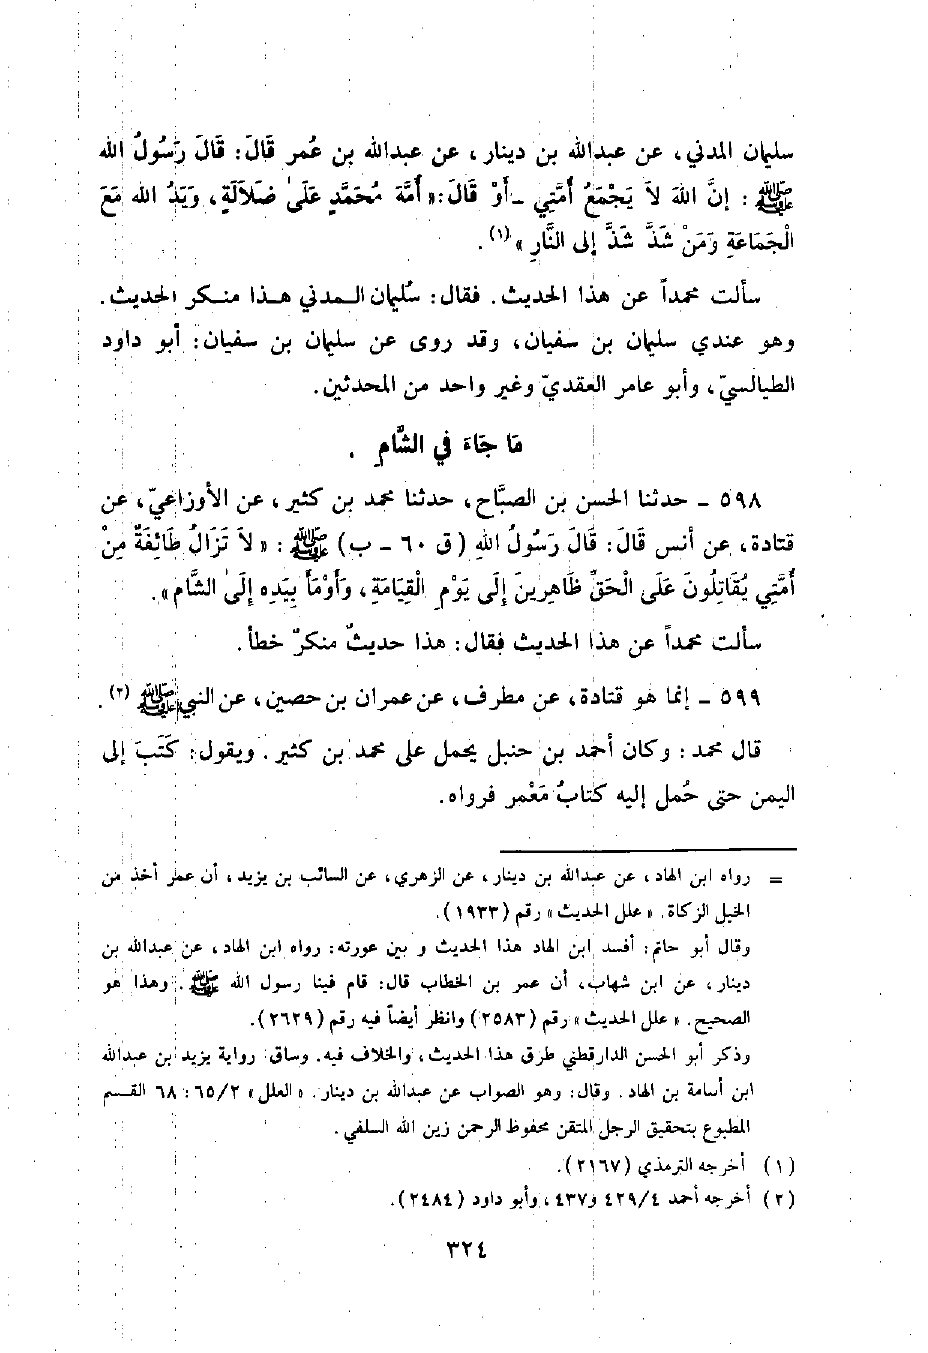 سليمان المدني، عن عبدالله بن دينار، عن عبدالله بن عمر قَالَ: قَالَ رَسُولُ الله
ﷺ: إنَّ اللهَ لاَ يَجْمَعُ أُمَّتِي ـ أَوْ قَالَ: « أُمَّةَ مُحَمَّدٍ عَلَىٰ ضَلاَلَةٍ، وَيَدُ الله مَعَ
الْجَمَاعَةِ وَمَنْ شَذَّ شَذَّ إلى النَّارِ »(١).
سألت محمداً عن هذا الحديث. فقال: سُليمان المدني هذا منكر الحديث.
وهو عندي سليمان بن سفيان، وقد روى عن سليمان بن سفيان: أبو داود
الطيالسيّ، وأبو عامر العقديّ وغير واحد من المحدثين.
مَا جَاءَ فِي الشَّامِ.
٥٩٨ ـ حدثنا الحسن بن الصبَّاح، حدثنا محمد بن كثير، عن الأوزاعيّ، عن
قتادة، عن أنس قَالَ: قَالَ رَسُولُ اللهِ (ق ٦٠ ـ ب) ﷺ: « لاَ تَزَالُ طَائِفَةٌ مِنْ
أُمَّتِي يُقَاتِلُونَ عَلَى الْحَقِّ ظَاهِرِينَ إِلَى يَوْمِ الْقِيَامَةِ، وَأَوْمَأَ بِيَدِهِ إِلَىٰ الشَّام ».
سألت محمداً عن هذا الحديث فقال: هذا حديثٌ منكرٌ خطأ.
٥٩٩ ـ إنما هو قتادة، عن مطرف، عن عمران بن حصين، عن النبي ﷺ (٢).
قال محمد: وكان أحمد بن حنبل يحمل على محمد بن كثير. ويقول: كَتَبَ إلى
اليمن حتى حُمل إليه كتابُ مَعْمر فرواه.
= رواه ابن الهاد، عن عبدالله بن دينار، عن الزهري، عن السائب بن يزيد، أن عمر أخذ من
الخيل الزكاة. « علل الحديث » رقم (١٩٣٣).
وقال أبو حاتم: أفسد ابن الهاد هذا الحديث و بين عورته: رواه ابن الهاد، عن عبدالله بن
دينار، عن ابن شهاب، أن عمر بن الخطاب قال: قام فينا رسول الله ﷺ. وهذا هو
الصحيح. « علل الحديث » رقم (٢٥٨٣) وانظر أيضاً فيه رقم (٢٦٢٩).
وذكر أبو الحسن الدارقطني طرق هذا الحديث، والخلاف فيه. وساق: رواية يزيد بن عبدالله
ابن أسامة بن الهاد. وقال: وهو الصواب عن عبدالله بن دينار. « العلل » ٦٥/٢: ٦٨ القسم
المطبوع بتحقيق الرجل المتقن محفوظ الرحمن زين الله السلفي.
(١) أخرجه الترمذي (٢١٦٧).
(٢) أخرجه أحمد ٤٢٩/٤ و٤٣٧، وأبو داود (٢٤٨٤).
٣٢٤